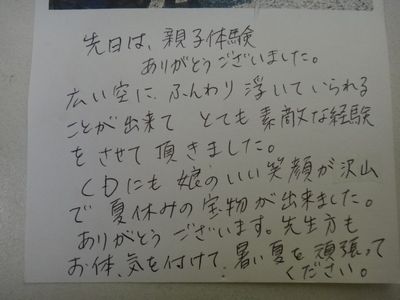 先日は、親子体験
ありがとうございました。
広い空に、ふんわり浮いていられる
ことが出来て とても素敵な経験
をさせて頂きました。
CDにも娘のいい笑顔が沢山
で 夏休みの宝物が出来ました。
ありがとうございます。先生方も
お体、気を付けて、暑い夏を頑張って
ください。